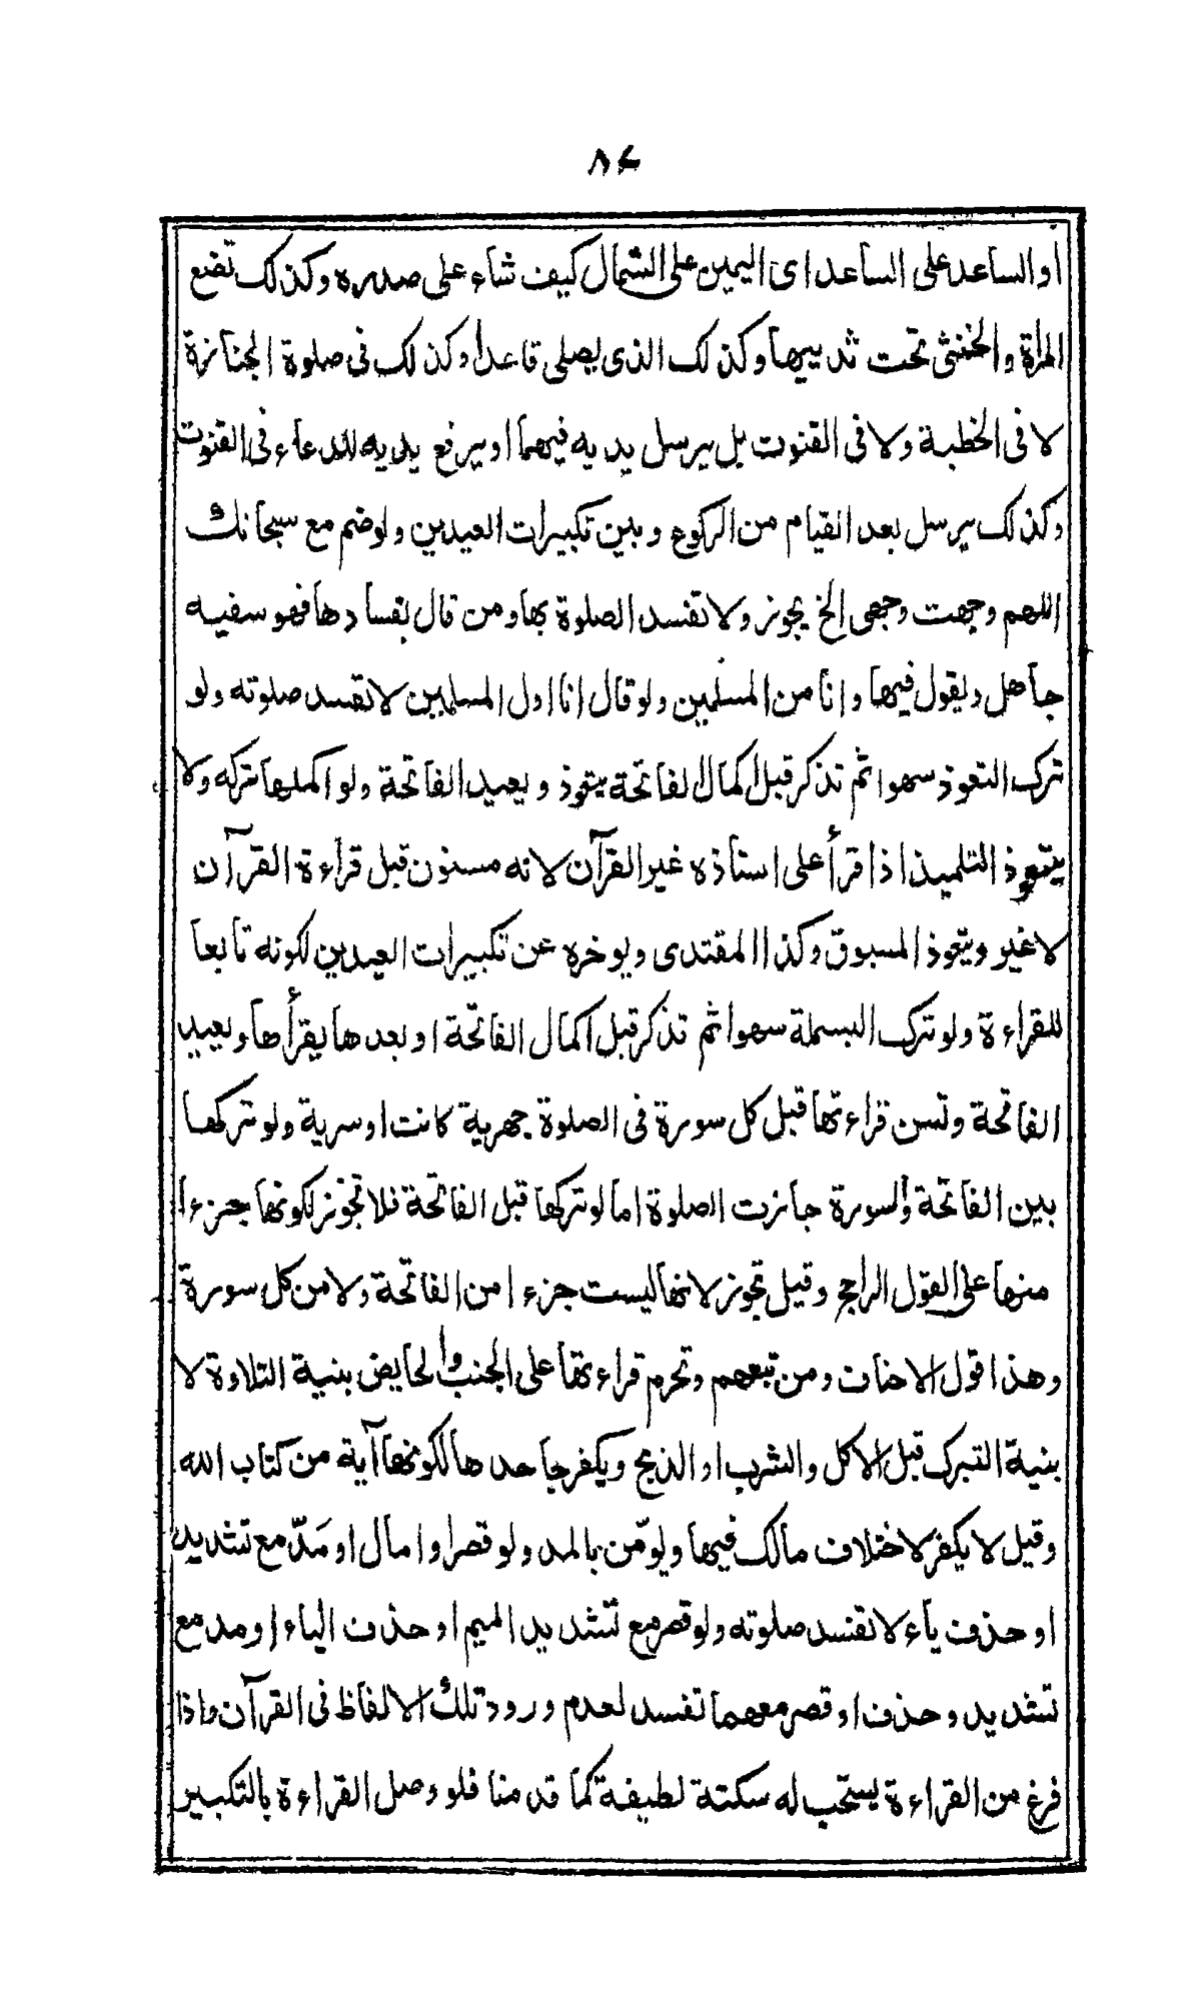 ٨٤
او الساعد على الساعد اى اليمين على الشمال كيف شاء على صدره وكذلك تضع
المرأة والخنثى تحت ثدييها وكذلك الذى يصلى قاعدا وكذلك فى صلوة الجنازة
لا فى الخطبة ولا فى القنوت بل يرسل يديه فيهما او يرفع يديه للدعاء فى القنوت
وكذلك يرسل بعد القيام من الركوع وبين تكبيرات العيدين ولو ضم مع سبحانك
اللهم وجهت وجهى الخ يجوز ولا تفسد الصلوة بها ومن قال بفسادها فهو سفيه
جاهل ويقول فيها وانا من المسلمين ولو قال انا اول المسلمين لا تفسد صلوته ولو
ترك التعوذ سهوا ثم تذكر قبل اكمال الفاتحة يتعوذ ويعيد الفاتحة ولو اكملها تركه ولا
يتعوذ التلميذ اذا قرأ على استاذه غير القرآن لانه مسنون قبل قراءة القرآن
لا غير ويتعوذ المسبوق وكذا المقتدى ويوخره عن تكبيرات العيدين لكونه تابعا
للقراءة ولو ترك البسملة سهوا ثم تذكر قبل اكمال الفاتحة او بعدها يقرأها ويعيد
الفاتحة وتسن قراءتها قبل كل سورة فى الصلوة جهرية كانت او سرية ولو تركها
بين الفاتحة والسورة جازت الصلوة اما لو تركها قبل الفاتحة فلا تجوز لكونها جزءا
منها على القول الراجح وقيل تجوز لانها ليست جزءا من الفاتحة ولا من كل سورة
وهذا قول الاحناف ومن تبعهم وتحرم قراءتها على الجنب والحايض بنية التلاوة لا
بنية التبرك قبل الاكل والشرب او الذبح ويكفر جاحدها لكونها آية من كتاب الله
وقيل لا يكفر لاختلاف مالك فيها ويومّن بالمد ولو قصر او امال او مَدّ مع تشديد
او حذف ياء لا تفسد صلوته ولو قصر مع تشديد الميم او حذف الياء او مد مع
تشديد وحذف او قصر معهما تفسد لعدم ورود تلك الالفاظ فى القرآن واذا
فرغ من القراءة يستحب له سكتة لطيفة كما قدمنا فلو وصل القراءة بالتكبير